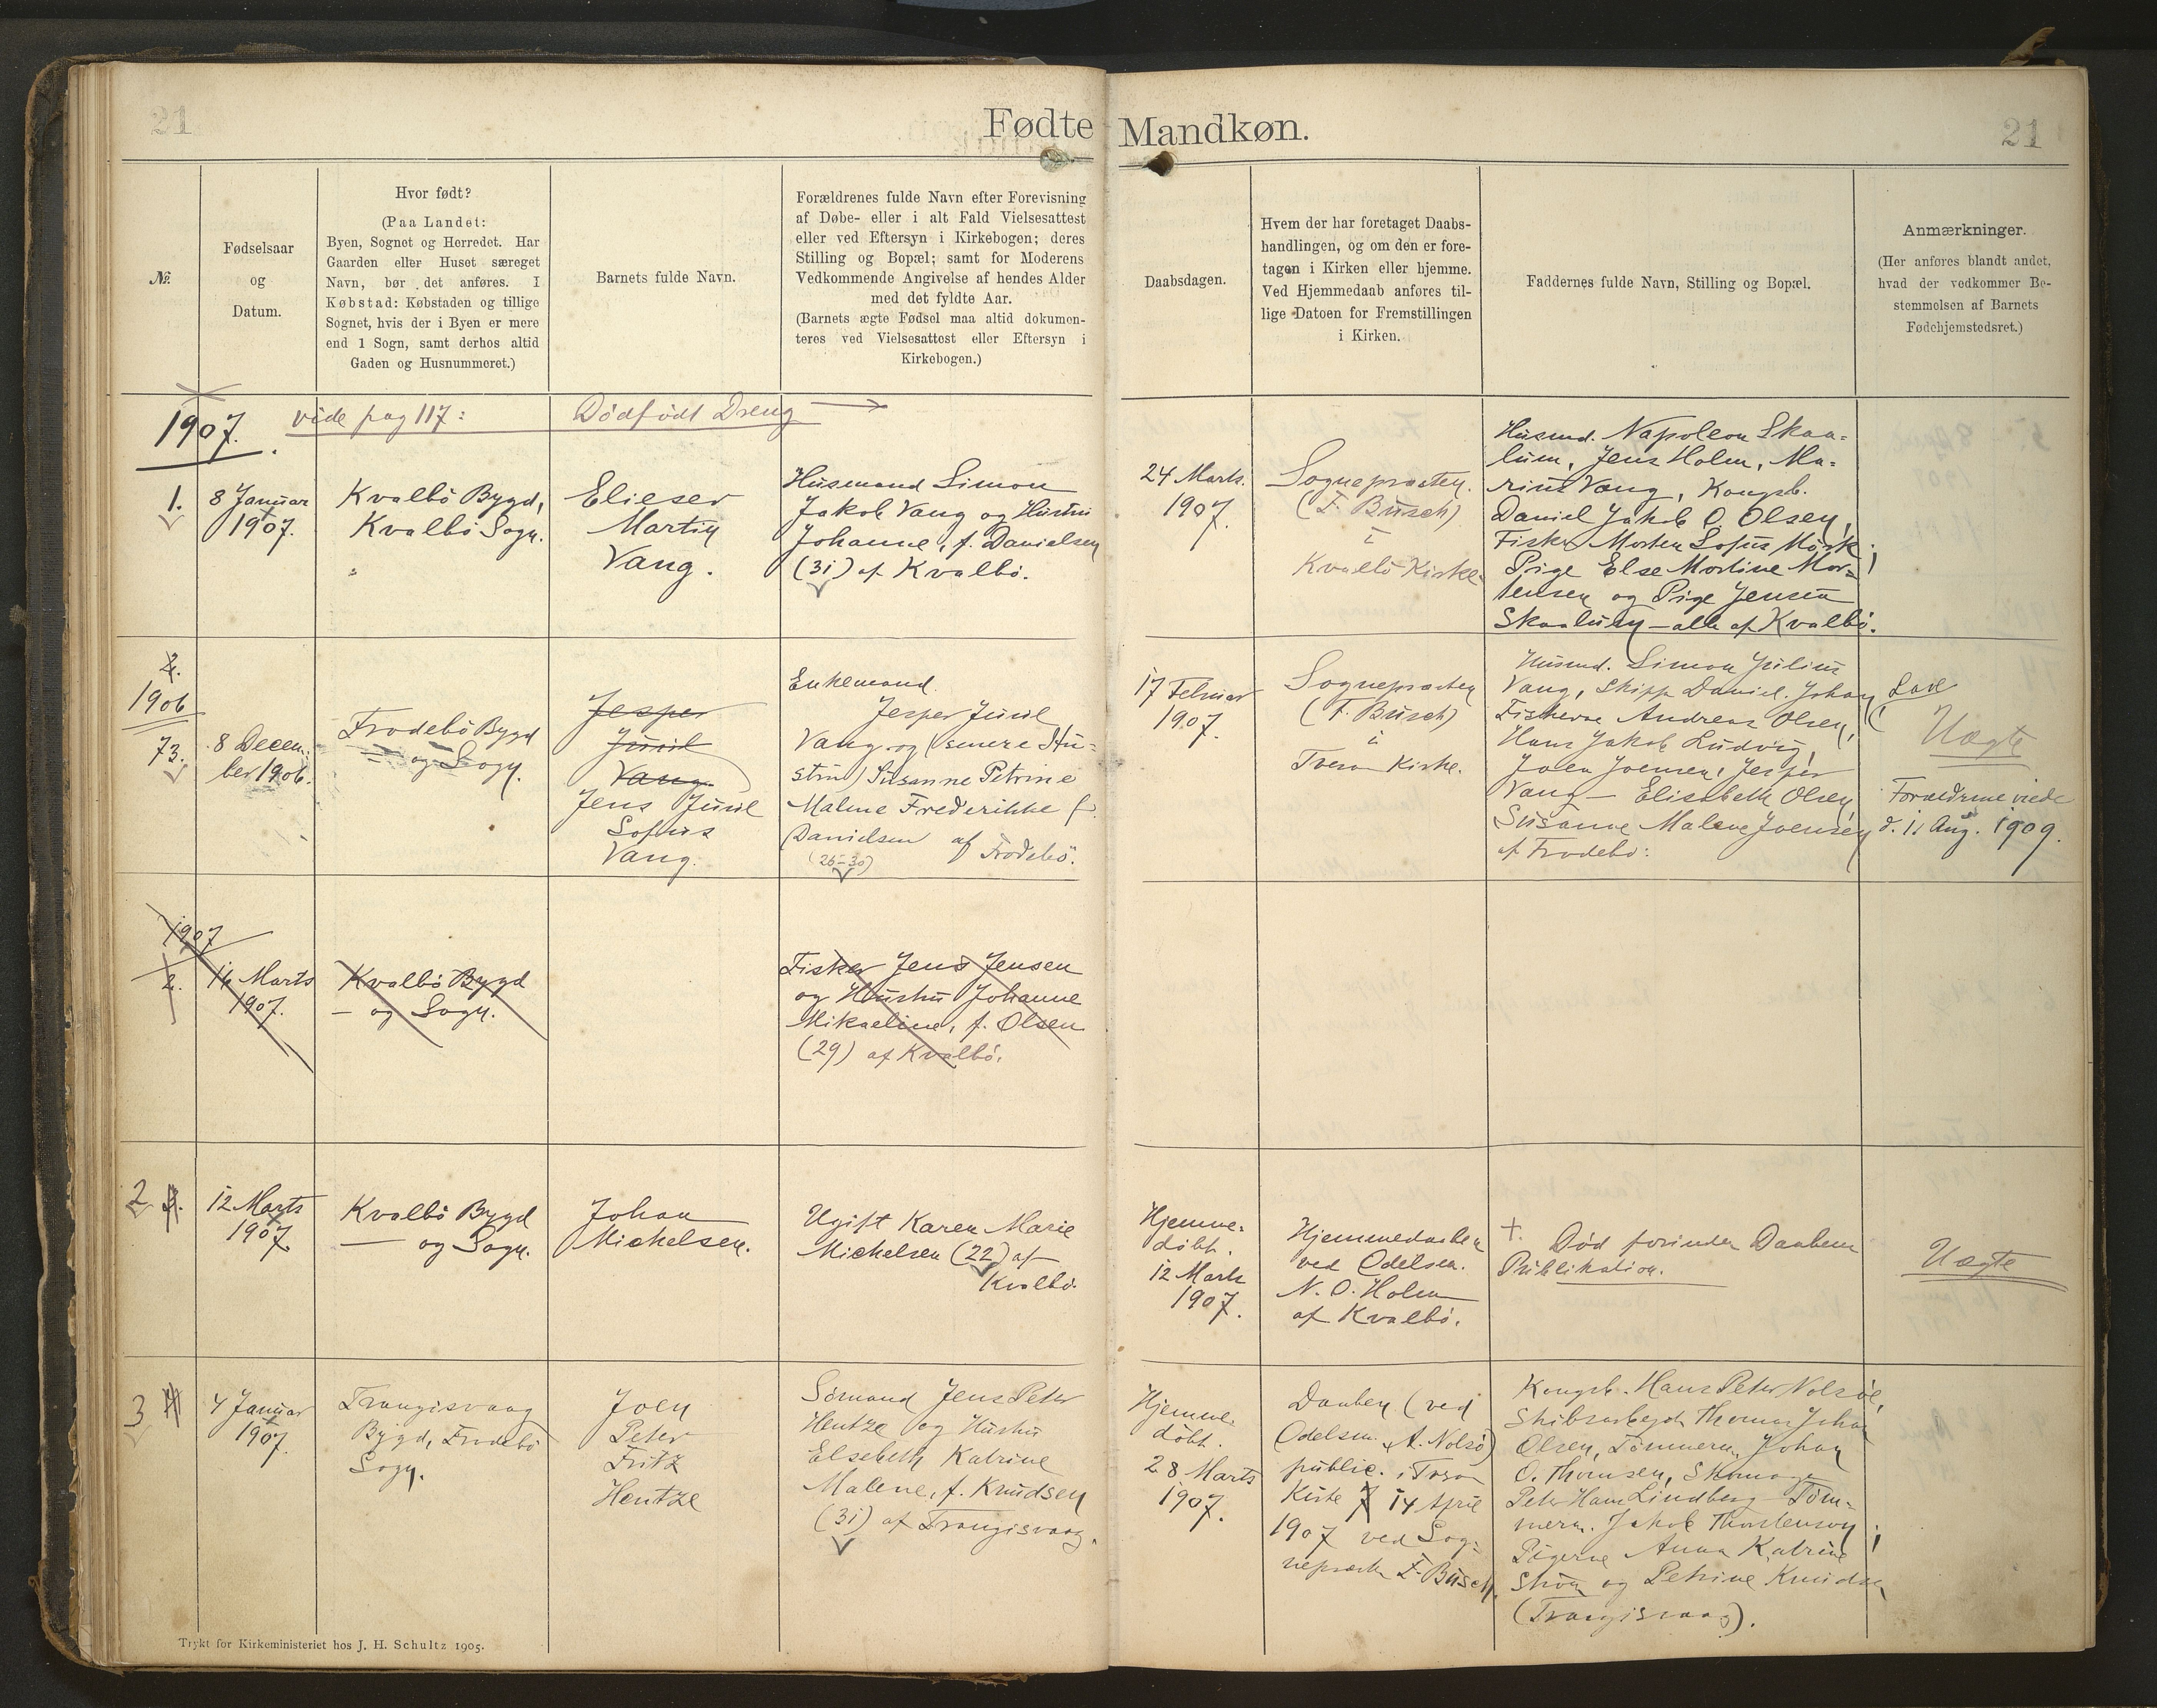 21
Fødte
Mandkøn.
21
№.
Fødselsaar
og
Datum.
Hvor født?
(Paa Landet:
Byen, Sognet og Herredet. Har
Gaarden eller Huset særeget
Navn, bør det anføres. I
Købstad: Købstaden og tillige
Sognet, hvis der i Byen er mere
end 1 Sogn, samt derhos altid
Gaden og Husnummeret.)
Barnets fulde Navn.
Forældrenes fulde Navn efter Forevisning
af Døbe- eller i alt Fald Vielsesattest
eller ved Eftersyn i Kirkebogen; deres
Stilling og Bopæl; samt for Moderens
Vedkommende Angivelse af hendes Alder
med det fyldte Aar.
(Barnets ægte Fødsel maa altid dokumen-
teres ved Vielsesattest eller Eftersyn i
Kirkebogen.)
Daabsdagen.
Hvem der har foretaget Daabs-
handlingen, og om den er fore-
tagen i Kirken eller hjemme.
Ved Hjemmedaab anføres til-
lige Datoen for Fremstillingen
i Kirken.
Faddernes fulde Navn, Stilling og Bopæl.
Anmærkninger.
(Her anføres blandt andet,
hvad der vedkommer Be-
stemmelsen af Barnets
Fødehjemstedsret.)
1907.
vide pag 117:
Dødfødt Dreng
1.
8 Januar
1907.
Kvalbö Bygd,
Kvalbö Sogn.
Elieser
Martin
Vang.
Husmand Simon
Jakob Vang og Hustru
Johanne, f. Danielsen
(31) af Kvalbö.
24 Marts.
1907.
Sognepræsten.
(F. Busch)
i
Kvalbö Kirke.
Husmd. Napoleon Skaa-
lum, Jens Holm, Ma-
rius Vang, Kongsb.
Daniel Jakob O. Olsen,
Fisker Morten Sofus Mörk;
Pige Else Mortine Mor-
tensen og Pige Jensina
Skaalum – alle af Kvalbö.
2.
1906
73.
8 Decem-
ber 1906.
Frodebö Bygd
– og Sogn.
Jesper
Juul
Vang
Jens Juul
Sofus
Vang.
Enkemand
Jesper Juul
Vang og (senere Hu-
stru) Susanne Petrine
Malene Frederikke f.
Danielsen af Frodebö.
(26–30)
17 Februar
1907.
Sognepræsten
(F. Busch)
i
Tverå Kirke.
Husmd. Simon Julius
Vang, Skipp. Daniel Johan
Fiskerne Andreas Olsen,
Hans Jakob Ludvig,
Joen Joensen, Jesper
Vang – Elisabeth Olsen
Susanne Malene Joensen
af Frodebö.
Uægte
Forældrene viede
d. 11 Aug. 1909.
1907
2.
16 Marts
1907.
Kvalbö Bygd
– og Sogn.
Fisker Jens Jensen
og Hustru Johanne
Mikaeline, f. Olsen
(29) af Kvalbö.
2
3.
12 Marts
1907.
Kvalbö Bygd
– og Sogn.
Johan
Michelsen.
Ugift Karen Marie
Michelsen (22) af
Kvalbö.
Hjemme-
döbt.
12 Marts
1907.
Hjemmedaaben
ved Odelsm.
N. O. Holm
af Kvalbö.
+. Død forinden Daabens
Publikation.
Uægte
3
4
4 Januar
1907.
Trangisvaag
Bygd, Frodebö
Sogn.
Joen
Peter
Fritz
Hentze
Sömand Jens Peter
Hentze og Hustru
Elsebeth Katrine
Malene, f. Knudsen
(31) af Trangisvaag.
Hjemme-
döbt.
28 Marts
1907.
Daaben (ved
Odelsm. A. Nolsö)
public. i Tverå
Kirke 14 April
1907 ved Sog-
nepræsten F. Busch.
Kongsb. Hans Peter Nolsöe,
Skibsarbejder Thomas Johan
Olsen, Tömmerm. Johan
O. Thomsen, Skomager
Peter Hans Lindberg Töm-
merm. Jakob Thorstensen;
Pigerne Anna Katrine
Ström og Petrine Knudsen
(Trangisvaag).
Trykt for Kirkeministeriet hos J. H. Schultz 1905.